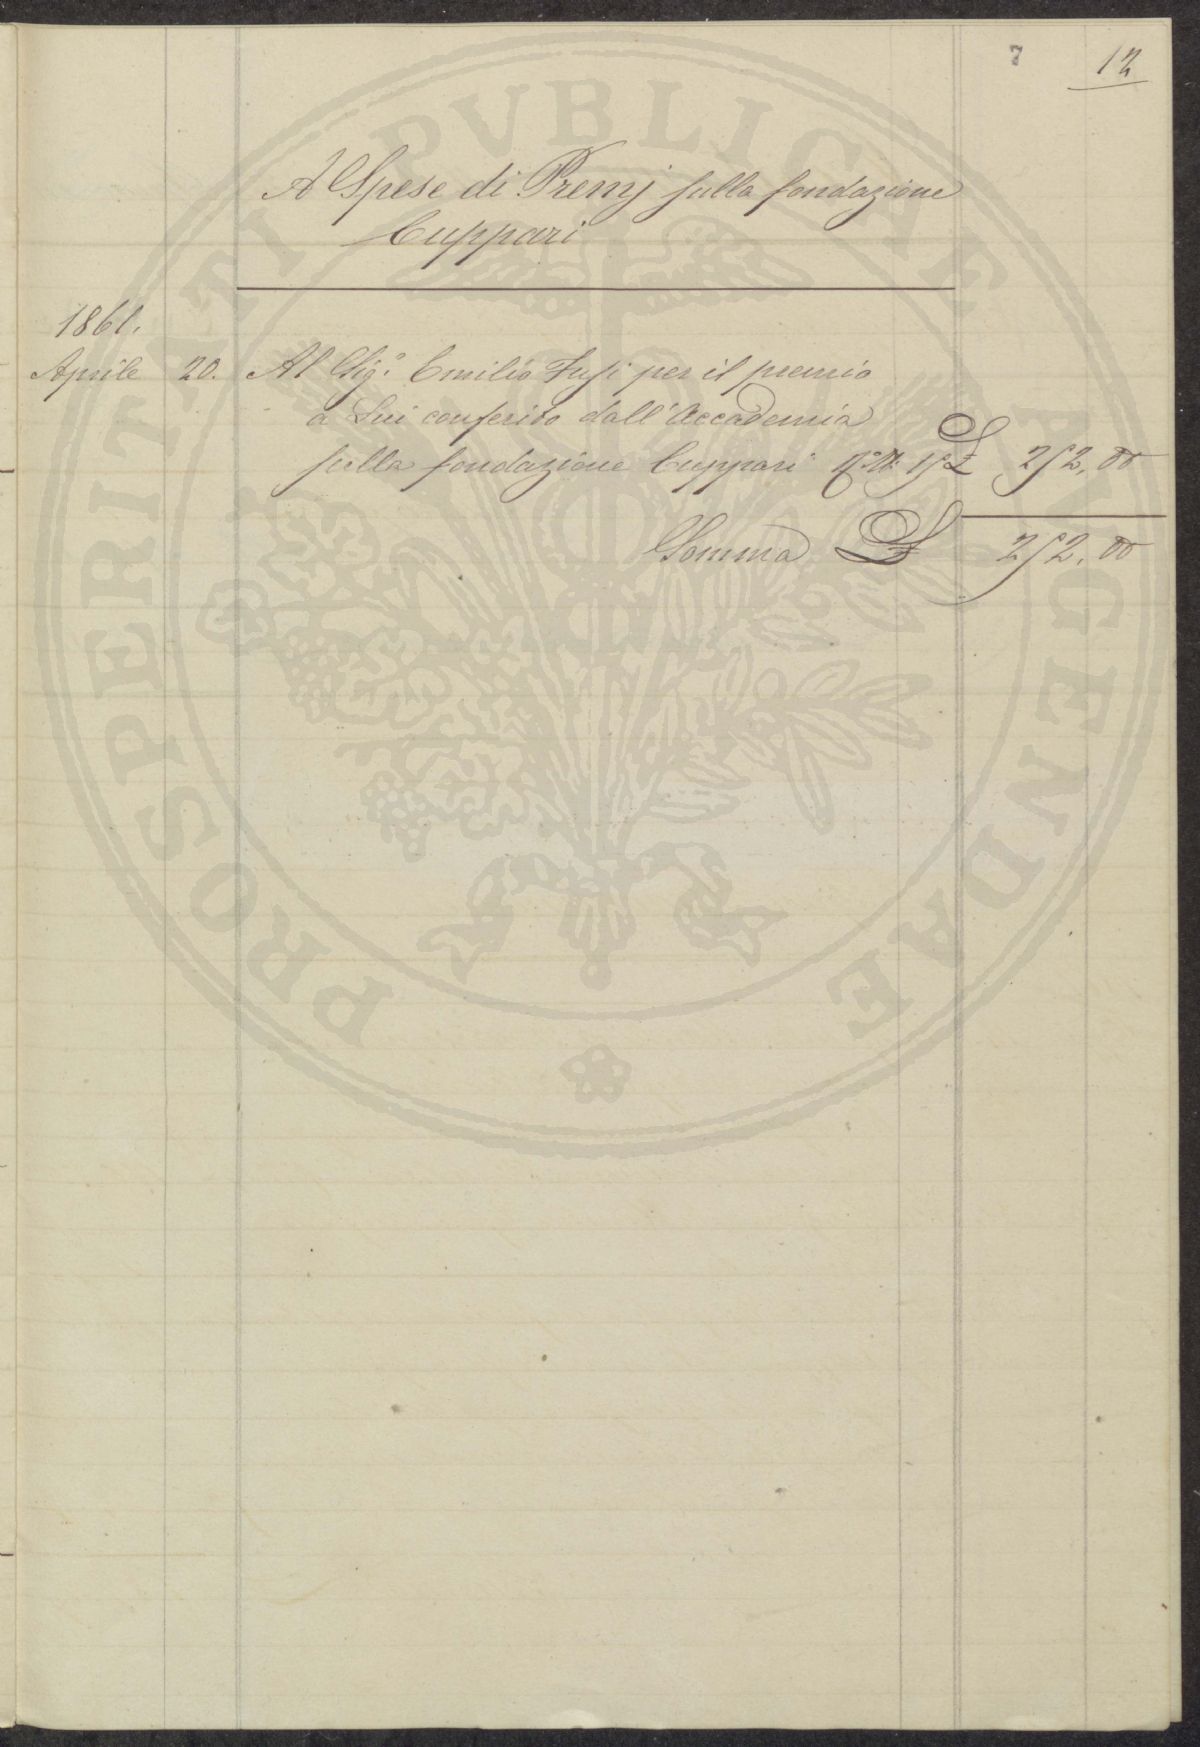 7 12
A Spese di Premj sulla fondazione
Cuppari
1861.
Aprile 20. Al Sig.r Emilio Fusi per il premio
a Lui conferito dall'Accademia
sulla fondazione Cuppari £ 252,00
Somma £ 252,00
PROSPERITATI PVBLICAE AVGENDAE